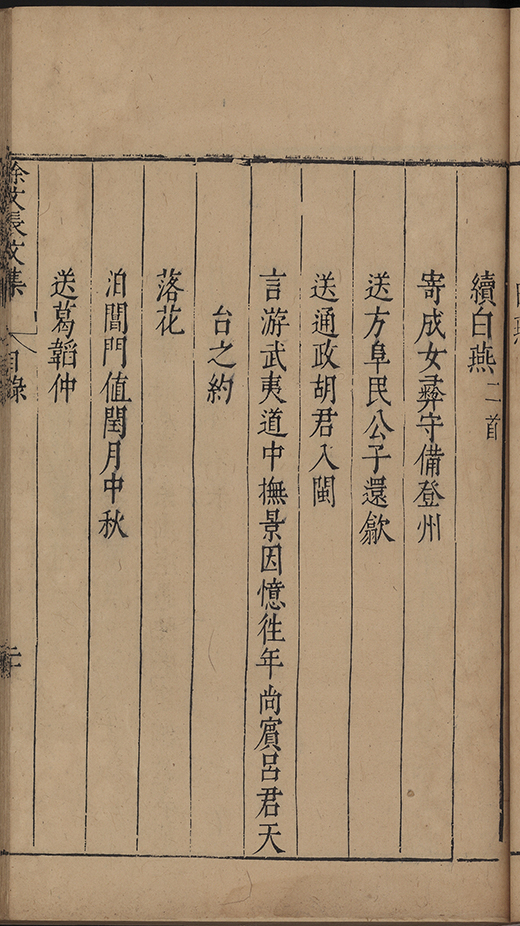 續白燕二首
寄成女彝守備登州
送方阜民公子還歙
送通政胡君入閩
言游武夷道中撫景因憶徃年尚賓呂君天
台之約
落花
泊閶門值閏月中秋
送葛韜仲
徐文長文集 目錄